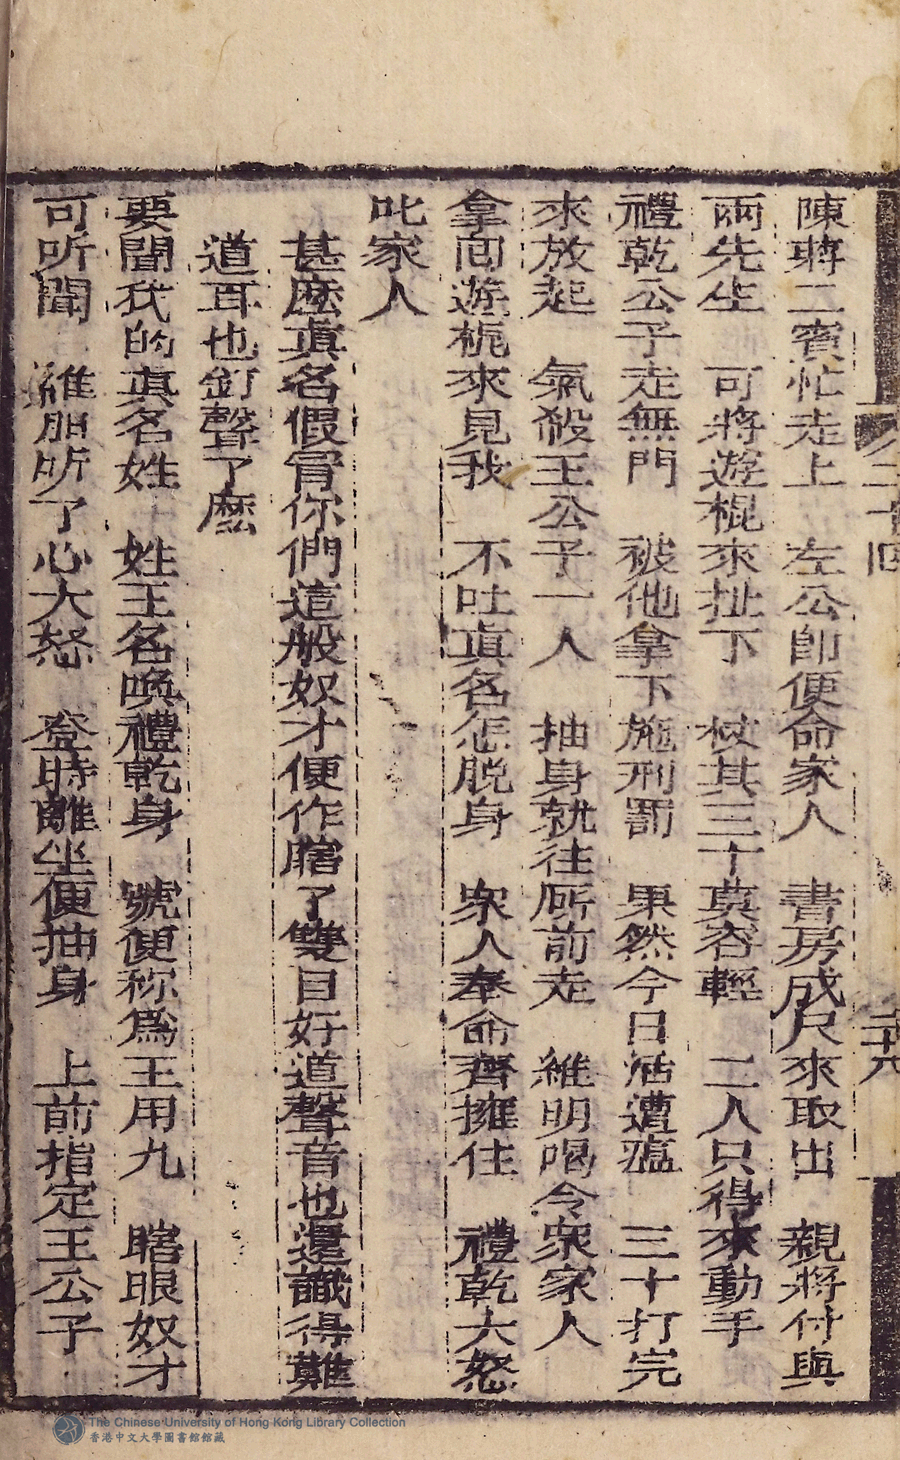 陳蔣二賓忙走上　左公即便命家人　書房成尺來取出　親將付與
兩先生　可將遊棍來扯下　杖其三十莫容輕　二人只得來動手
禮乾公子走無門　被他拿下施刑罰　果然今日活遭瘟　三十打完
來放起　氣殺王公子一人　抽身就往厠前走　維明喝令衆家人
拿囘遊棍來見我　不吐真名怎脫身　衆人奉命齊擁住　禮乾大怒
叱家人
甚麽真名假冒你們這般奴才便作瞎了雙目好道聲音也還識得難
道耳也釘聾了麽
要聞我的真名姓　姓王名喚禮乾身　號便称爲王用九　瞎眼奴才
可听聞　維明听了心大怒　登時離坐便抽身　上前指定王公子
二十四
The Chinese University of Hong Kong Library Collection
香港中文大學圖書館館藏